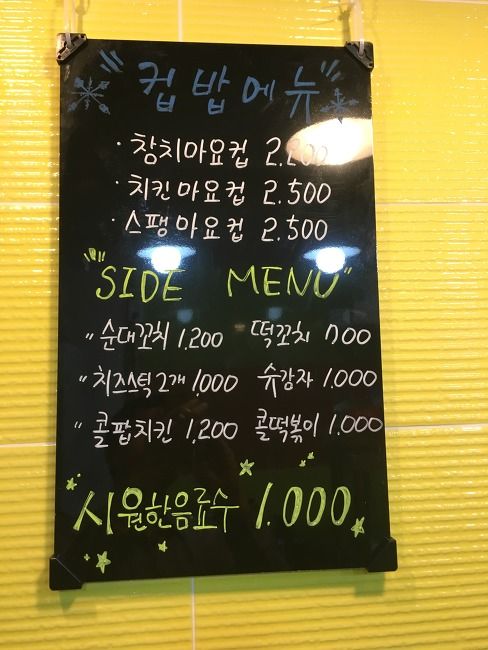 "컵밥메뉴"
· 참치마요컵 2.200
· 치킨마요컵 2.500
· 스팸마요컵 2.500
"SIDE MENU"
" 순대꼬치 1,200 떡꼬치 700
" 치즈스틱2개 1,000 슈감자 1.000
" 콜팝치킨 1,200 콜떡볶이 1.000
시원한음료수 1.000